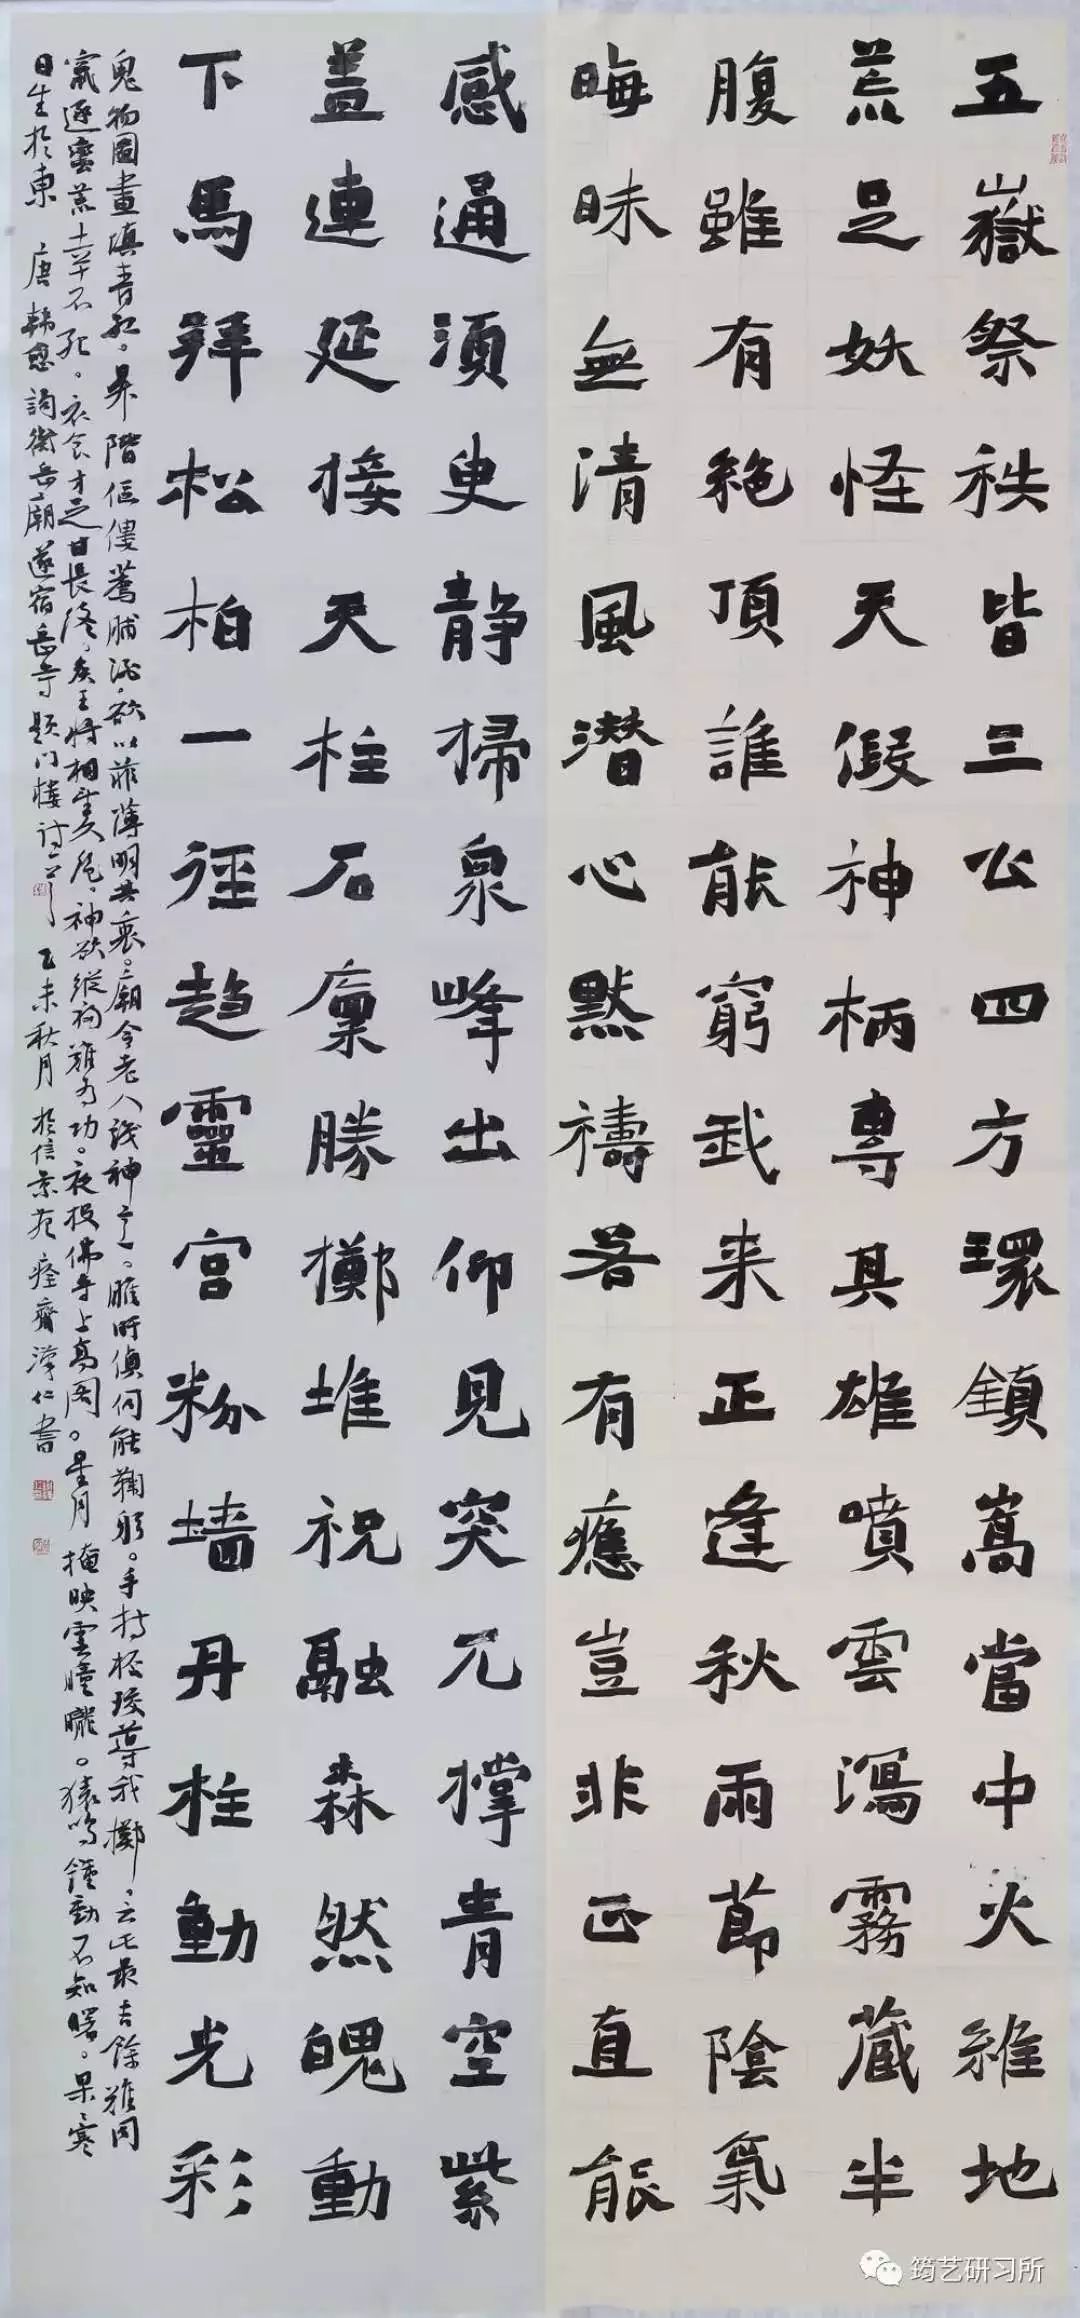 五嶽祭秩皆三公四方環鎮嵩當中火維地
荒足妖怪天假神柄專其雄噴雲瀉霧藏半
腹雖有絕頂誰能窮我来正逢秋雨節陰氣
晦昧無清風潛心默禱若有應豈非正直能
感通須臾静掃衆峰出仰見突兀撑青空紫
盖連延接天柱石廩騰擲堆祝融森然魄動
下馬拜松柏一徑趨靈宮粉墙丹柱動光彩
鬼物圖畫填青紅。昇階傴僂薦脯酒,欲以菲薄明其衷。廟令老人識神意。睢盱偵伺能鞠躬。手持杯珓導我擲,云此最吉餘難同
竄逐蠻荒幸不死。衣食才足甘長終,侯王將相望久絕,神欲縱福難為功。夜投佛寺上高閣。星月掩映雲曈曨。猿鳴鐘動不知曙。杲杲寒
日生於東 唐韓愈謁衡岳廟遂宿岳寺題門樓詩 乙未秋月於信京苑 齋 仁書
筠艺研习所